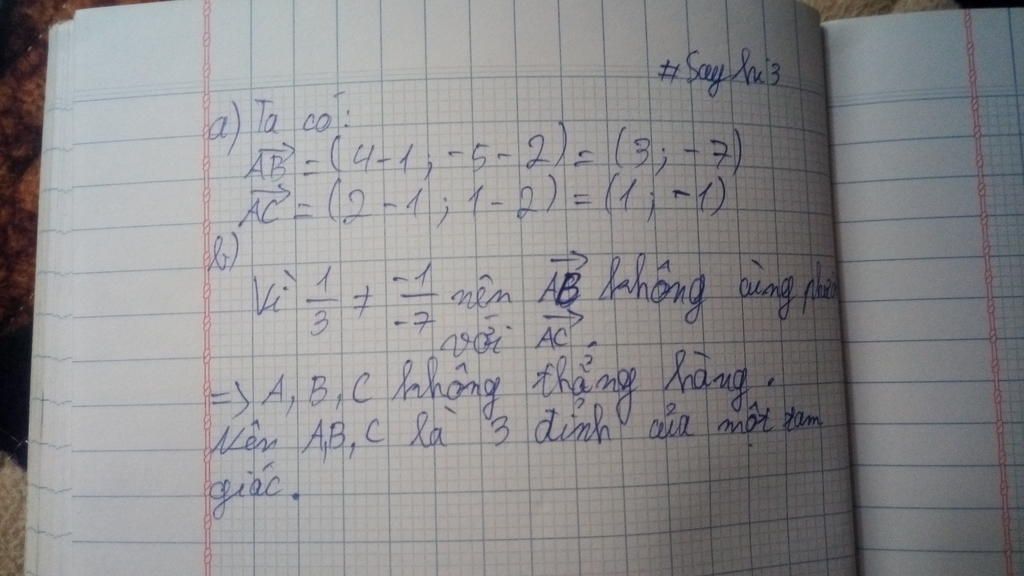 # Say hi 3
a) Ta có:
AB = (4-1; -5-2) = (3; -7)
AC = (2-1; 1-2) = (1; -1)
b)
Vì 1/3 ≠ -1/-7 nên AB không cùng
với AC.
=> A, B, C không thẳng hàng.
Nên A,B,C là 3 đỉnh của một tam
giác.